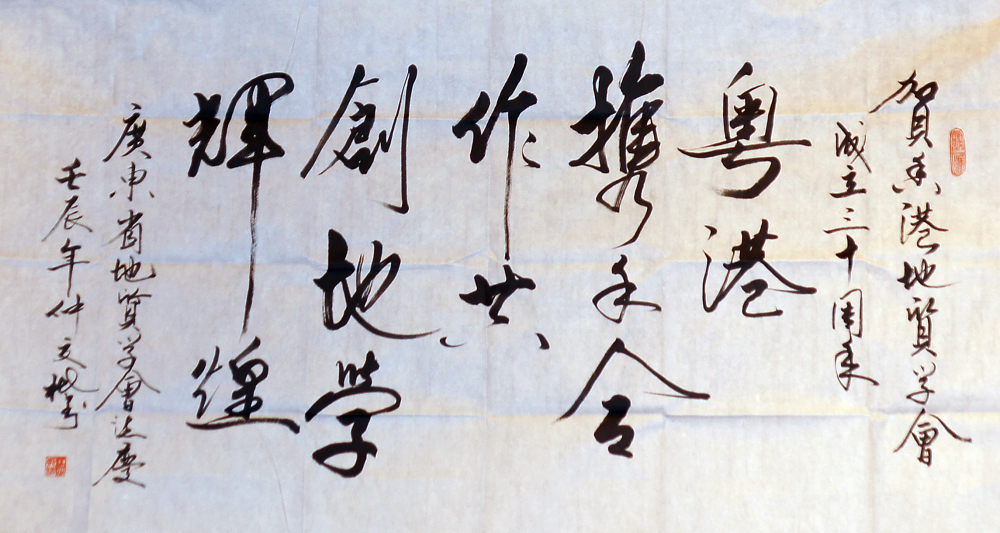 賀香港地質学會
成立三十周年
粵港
攜手合
作共
創地學
輝煌
廣東省地質学會誌慶
壬辰年仲文